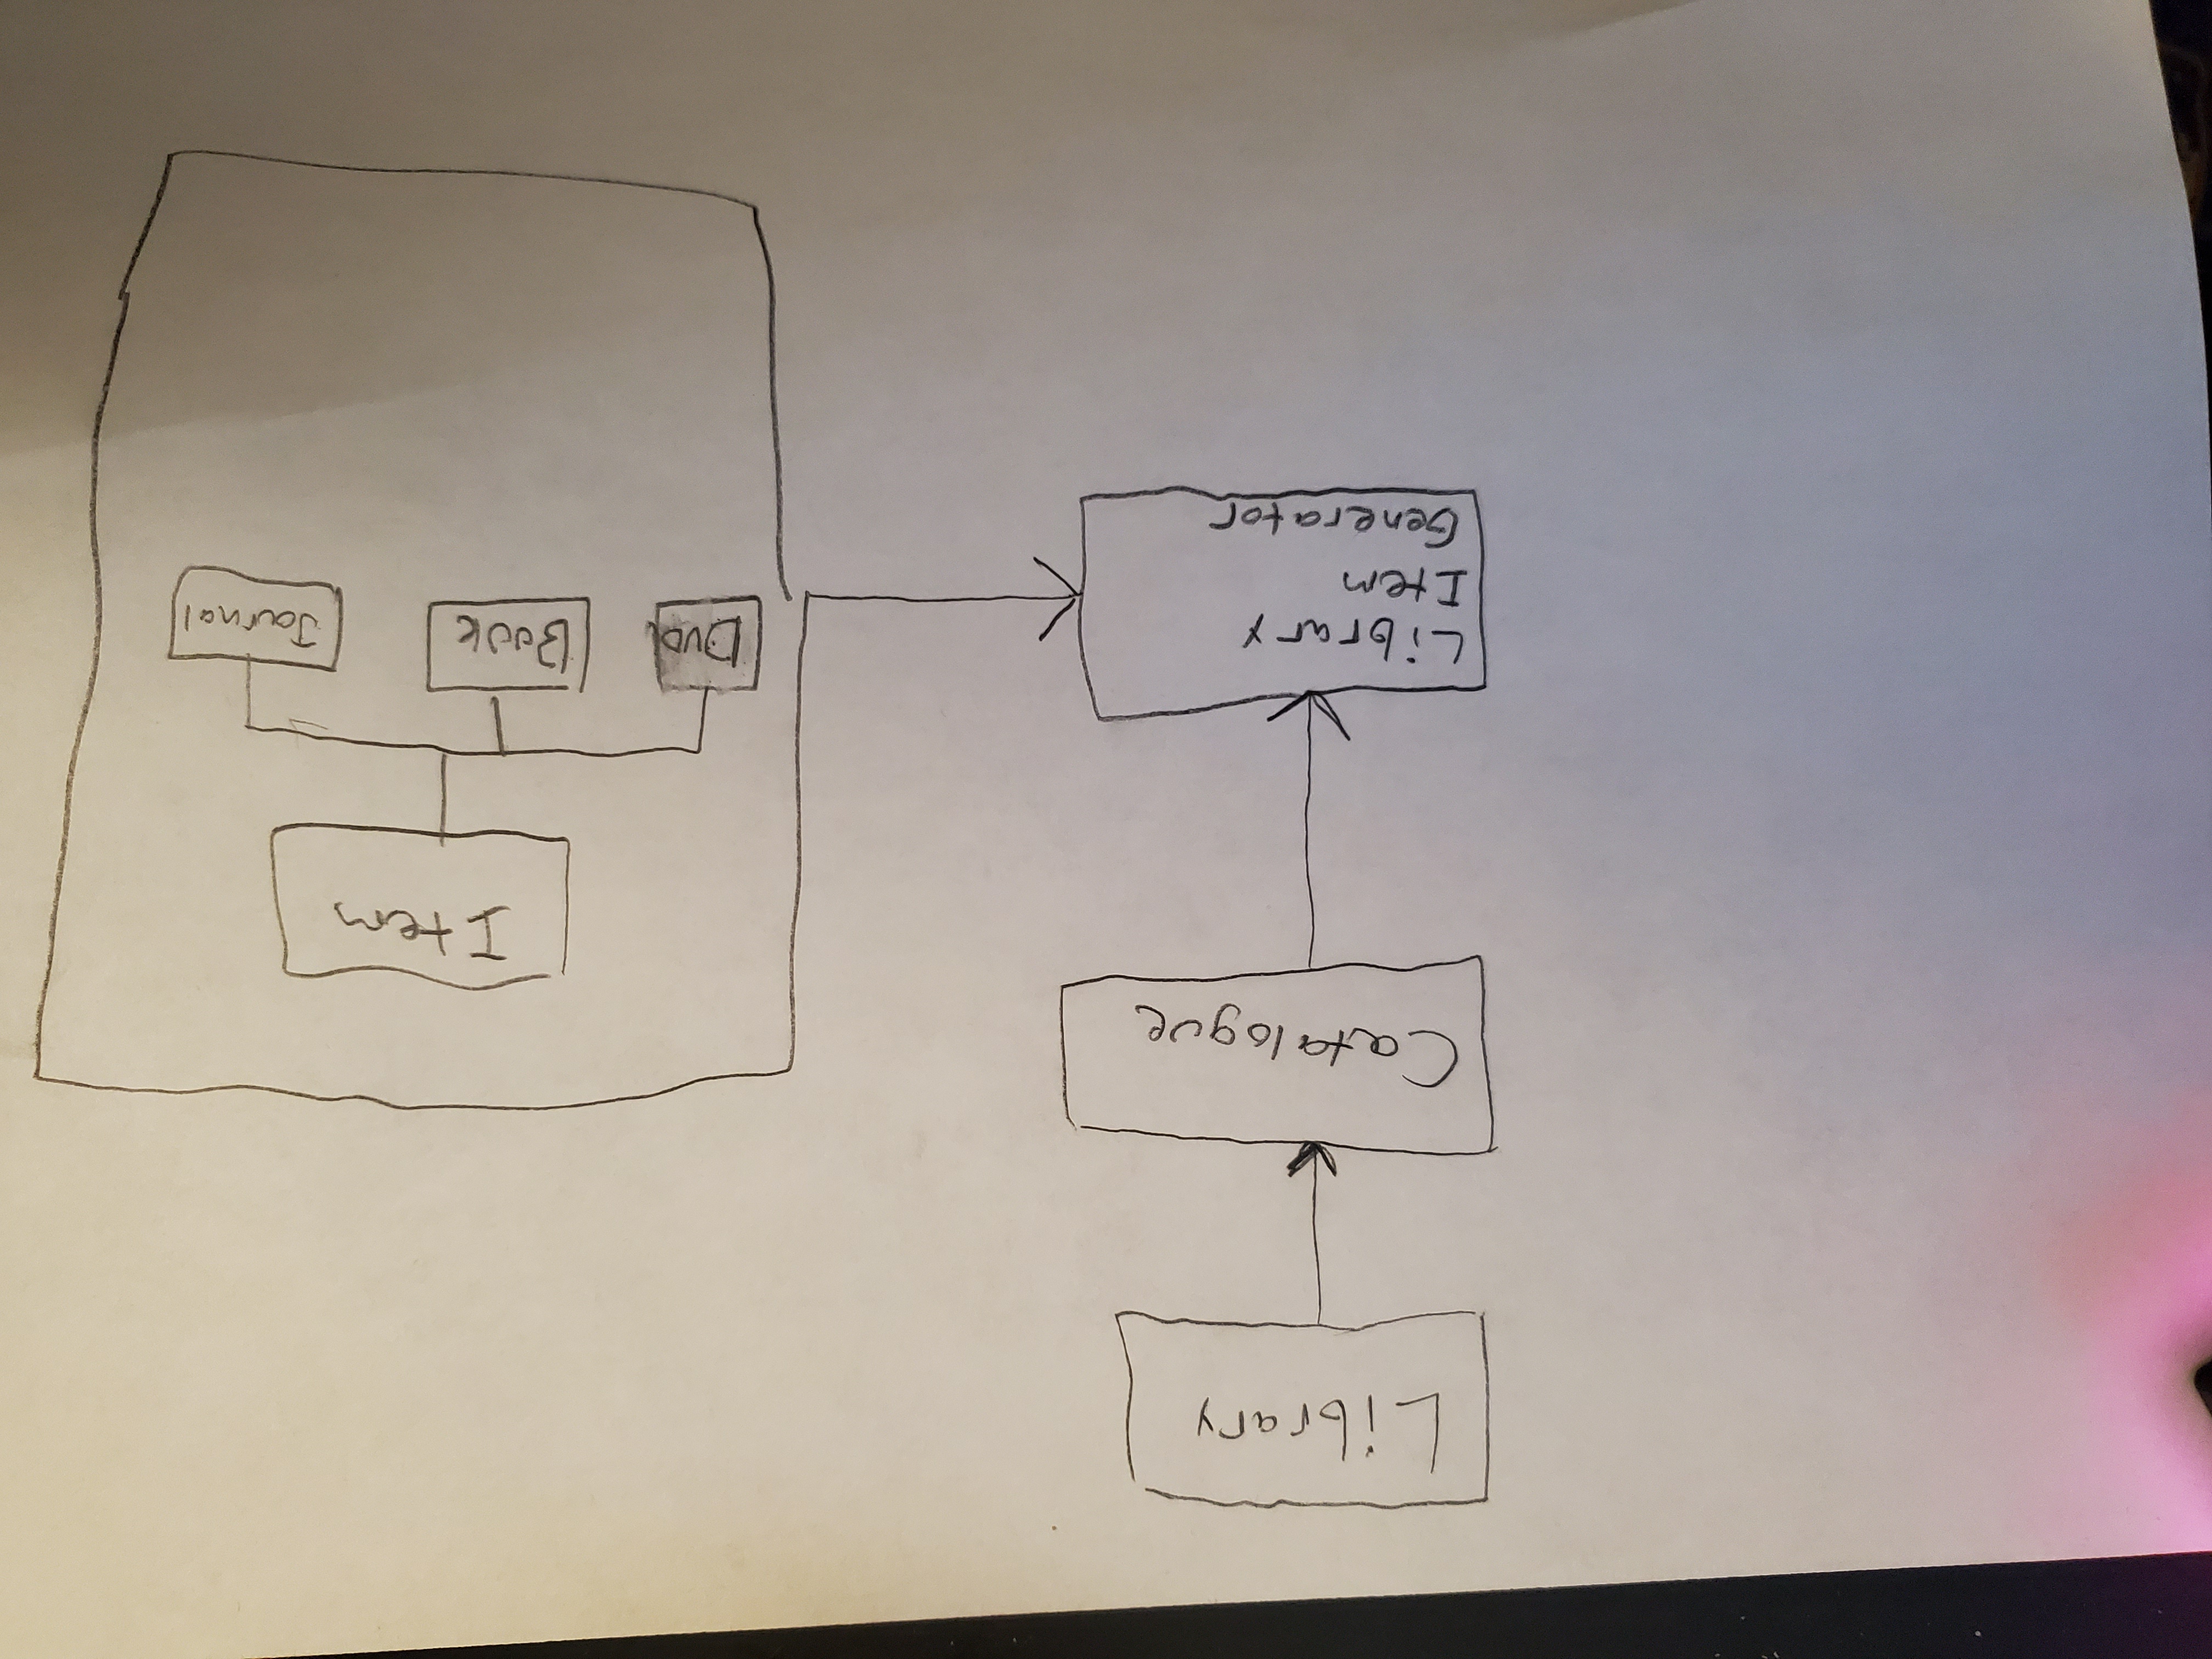 Library
Catalogue
Library
Item
Generator
Item
DVD
Book
Journal